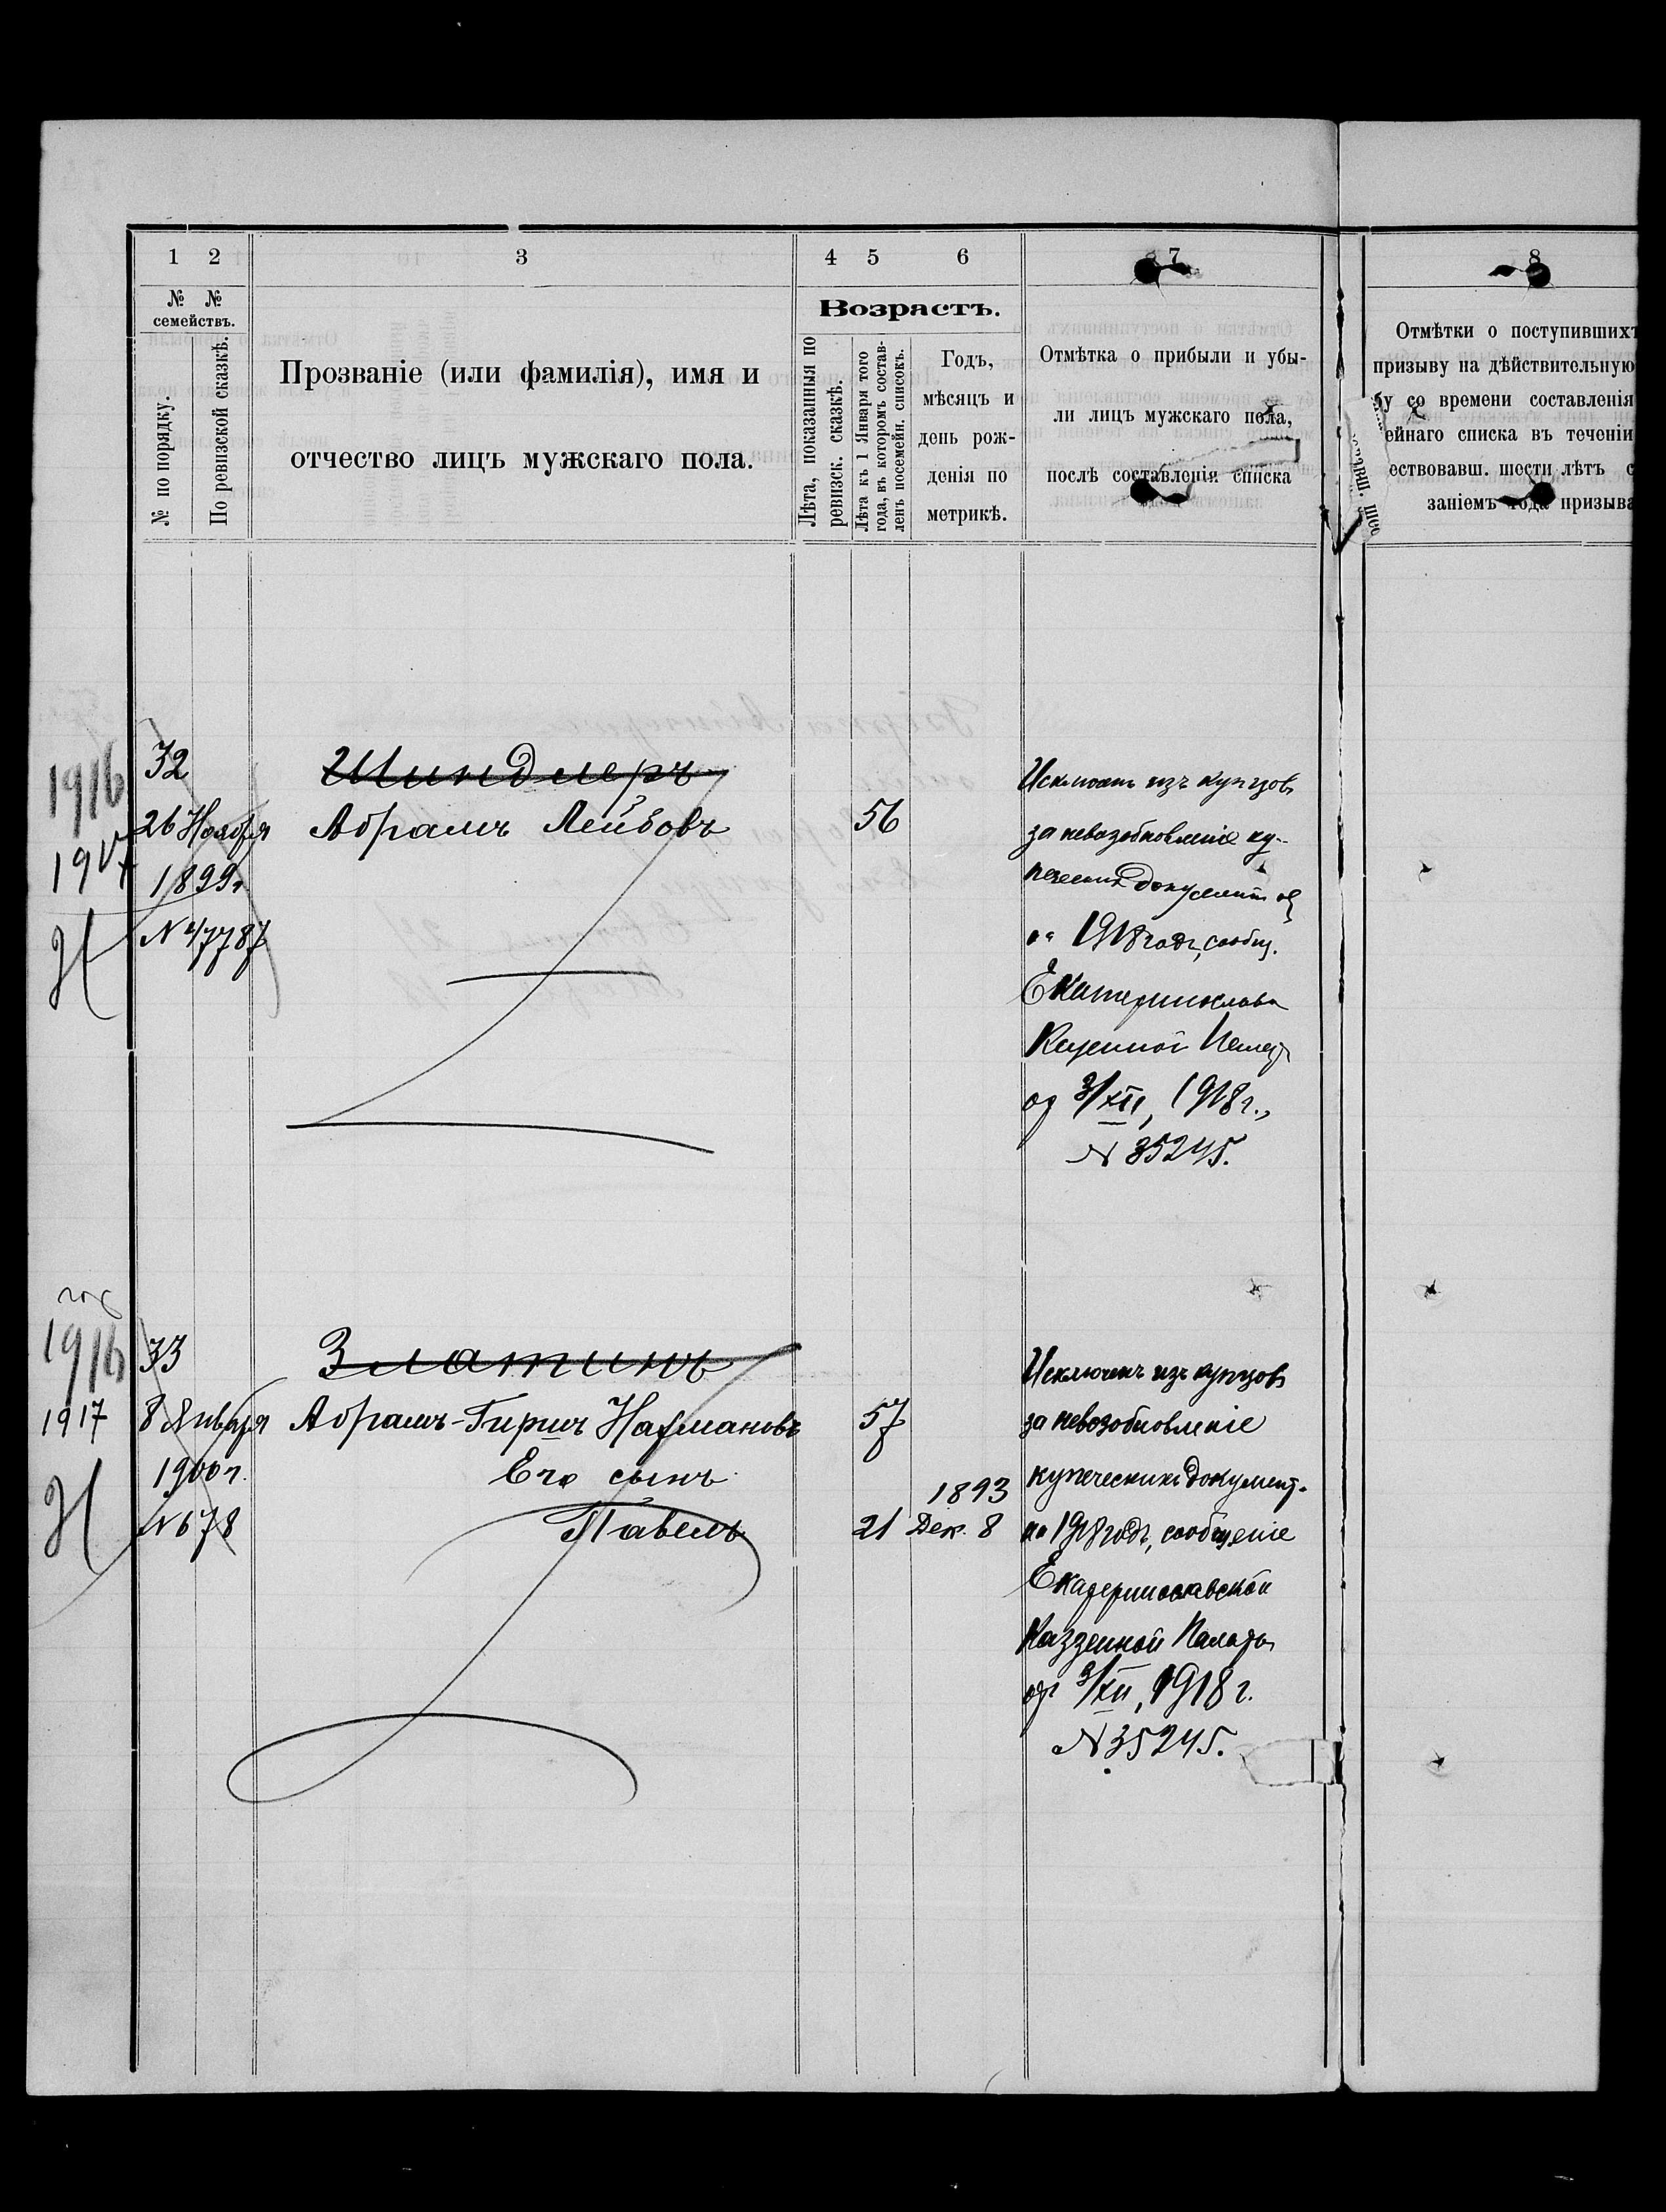 1 2 3 4 5 6 7 8
№ № семействъ.
№ по порядку.
По ревизской сказкѣ.
Прозваніе (или фамилія), имя и
отчество лицъ мужскаго пола.
Возрастъ.
Лѣта, показанныя по
ревизск. сказкѣ.
Лѣта къ 1 Января того
года, въ которомъ состав-
ленъ посемейн. списокъ.
Годъ,
мѣсяцъ и
день рож-
денія по
метрикѣ.
Отмѣтка о прибыли и убы-
ли лицъ мужскаго пола,
послѣ составленія списка
Отмѣтки о поступившихъ
призыву на дѣйствительную
бу со времени составленія
ейнаго списка въ теченіи
ествовавш. шести лѣтъ с
заніемъ года призыва
1916
1917
32
26 Ноября
1899 г.
№ 47787
Шиндлеръ
Абрамъ Лейбовъ
56
Исключенъ изъ купцовъ
за невозобновленіе ку-
ческихъ документовъ
на 1918 годъ, сообщ.
Екатеринослав
Казенной Палаты
от 3/XII, 1918 г.,
№ 35245.
1916
1917
33
8 Января
1900 г.
№ 678
Златинъ
Абрамъ-Гиршъ Нахмановъ
57
Его сынъ
Павелъ
21
1893
Дек. 8
Исключенъ изъ купцовъ
за невозобновленіе
купеческихъ документ.
на 1918 годъ, сообщеніе
Екатеринославской
Казенной Палаты
от 3/XII, 1918 г.
№ 35245.